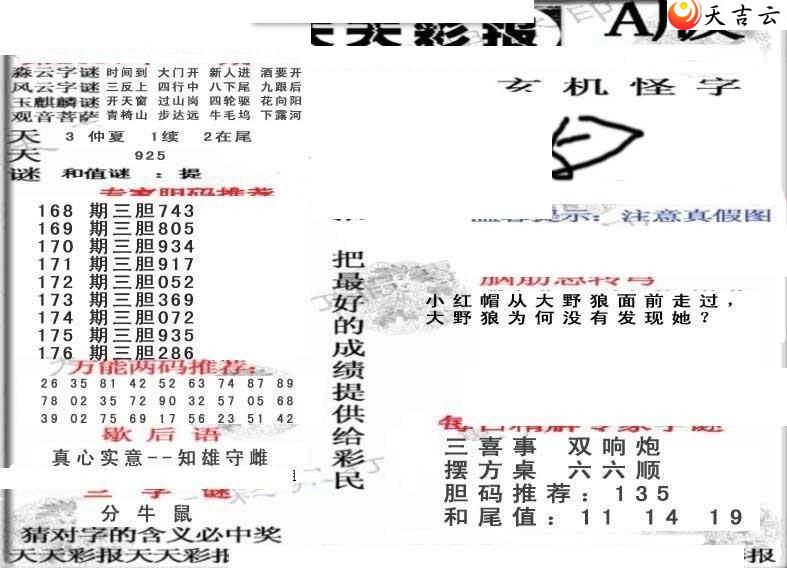 天天彩报
A
天吉云
森云字谜 时间到 大门开 新人进 酒要开
风云字谜 三反上 四行中 八下尾 九跟后
玉麒麟谜 开天窗 过山岗 四轮驱 花向阳
观音菩萨 青椅山 步达远 牛毛坞 下露河
天 3 仲夏 1续 2在尾
天 925
谜 和值谜 ：提
专家胆码推荐
168 期三胆743
169 期三胆805
170 期三胆934
171 期三胆917
172 期三胆052
173 期三胆369
174 期三胆072
175 期三胆935
176 期三胆286
万能两码推荐：
26 35 81 42 52 63 74 87 89
78 02 35 72 90 32 57 05 68
39 02 75 69 17 56 23 51 42
歇后语
真心实意--知雄守雌
三字谜
分牛鼠
猜对字的含义必中奖
天天彩报天天彩报
把最好的成绩提供给彩民
玄机怪字
温馨提示：注意真假图
脑筋急转弯
小红帽从大野狼面前走过，
大野狼为何没有发现她？
每日精解专家字谜
三喜事 双响炮
摆方桌 六六顺
胆码推荐：135
和尾值：11 14 19
彩报